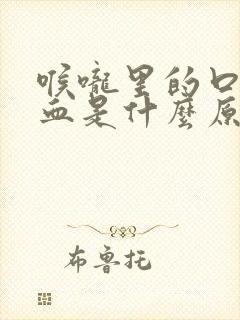 喉嚨里的口
血是什麼原
布魯托